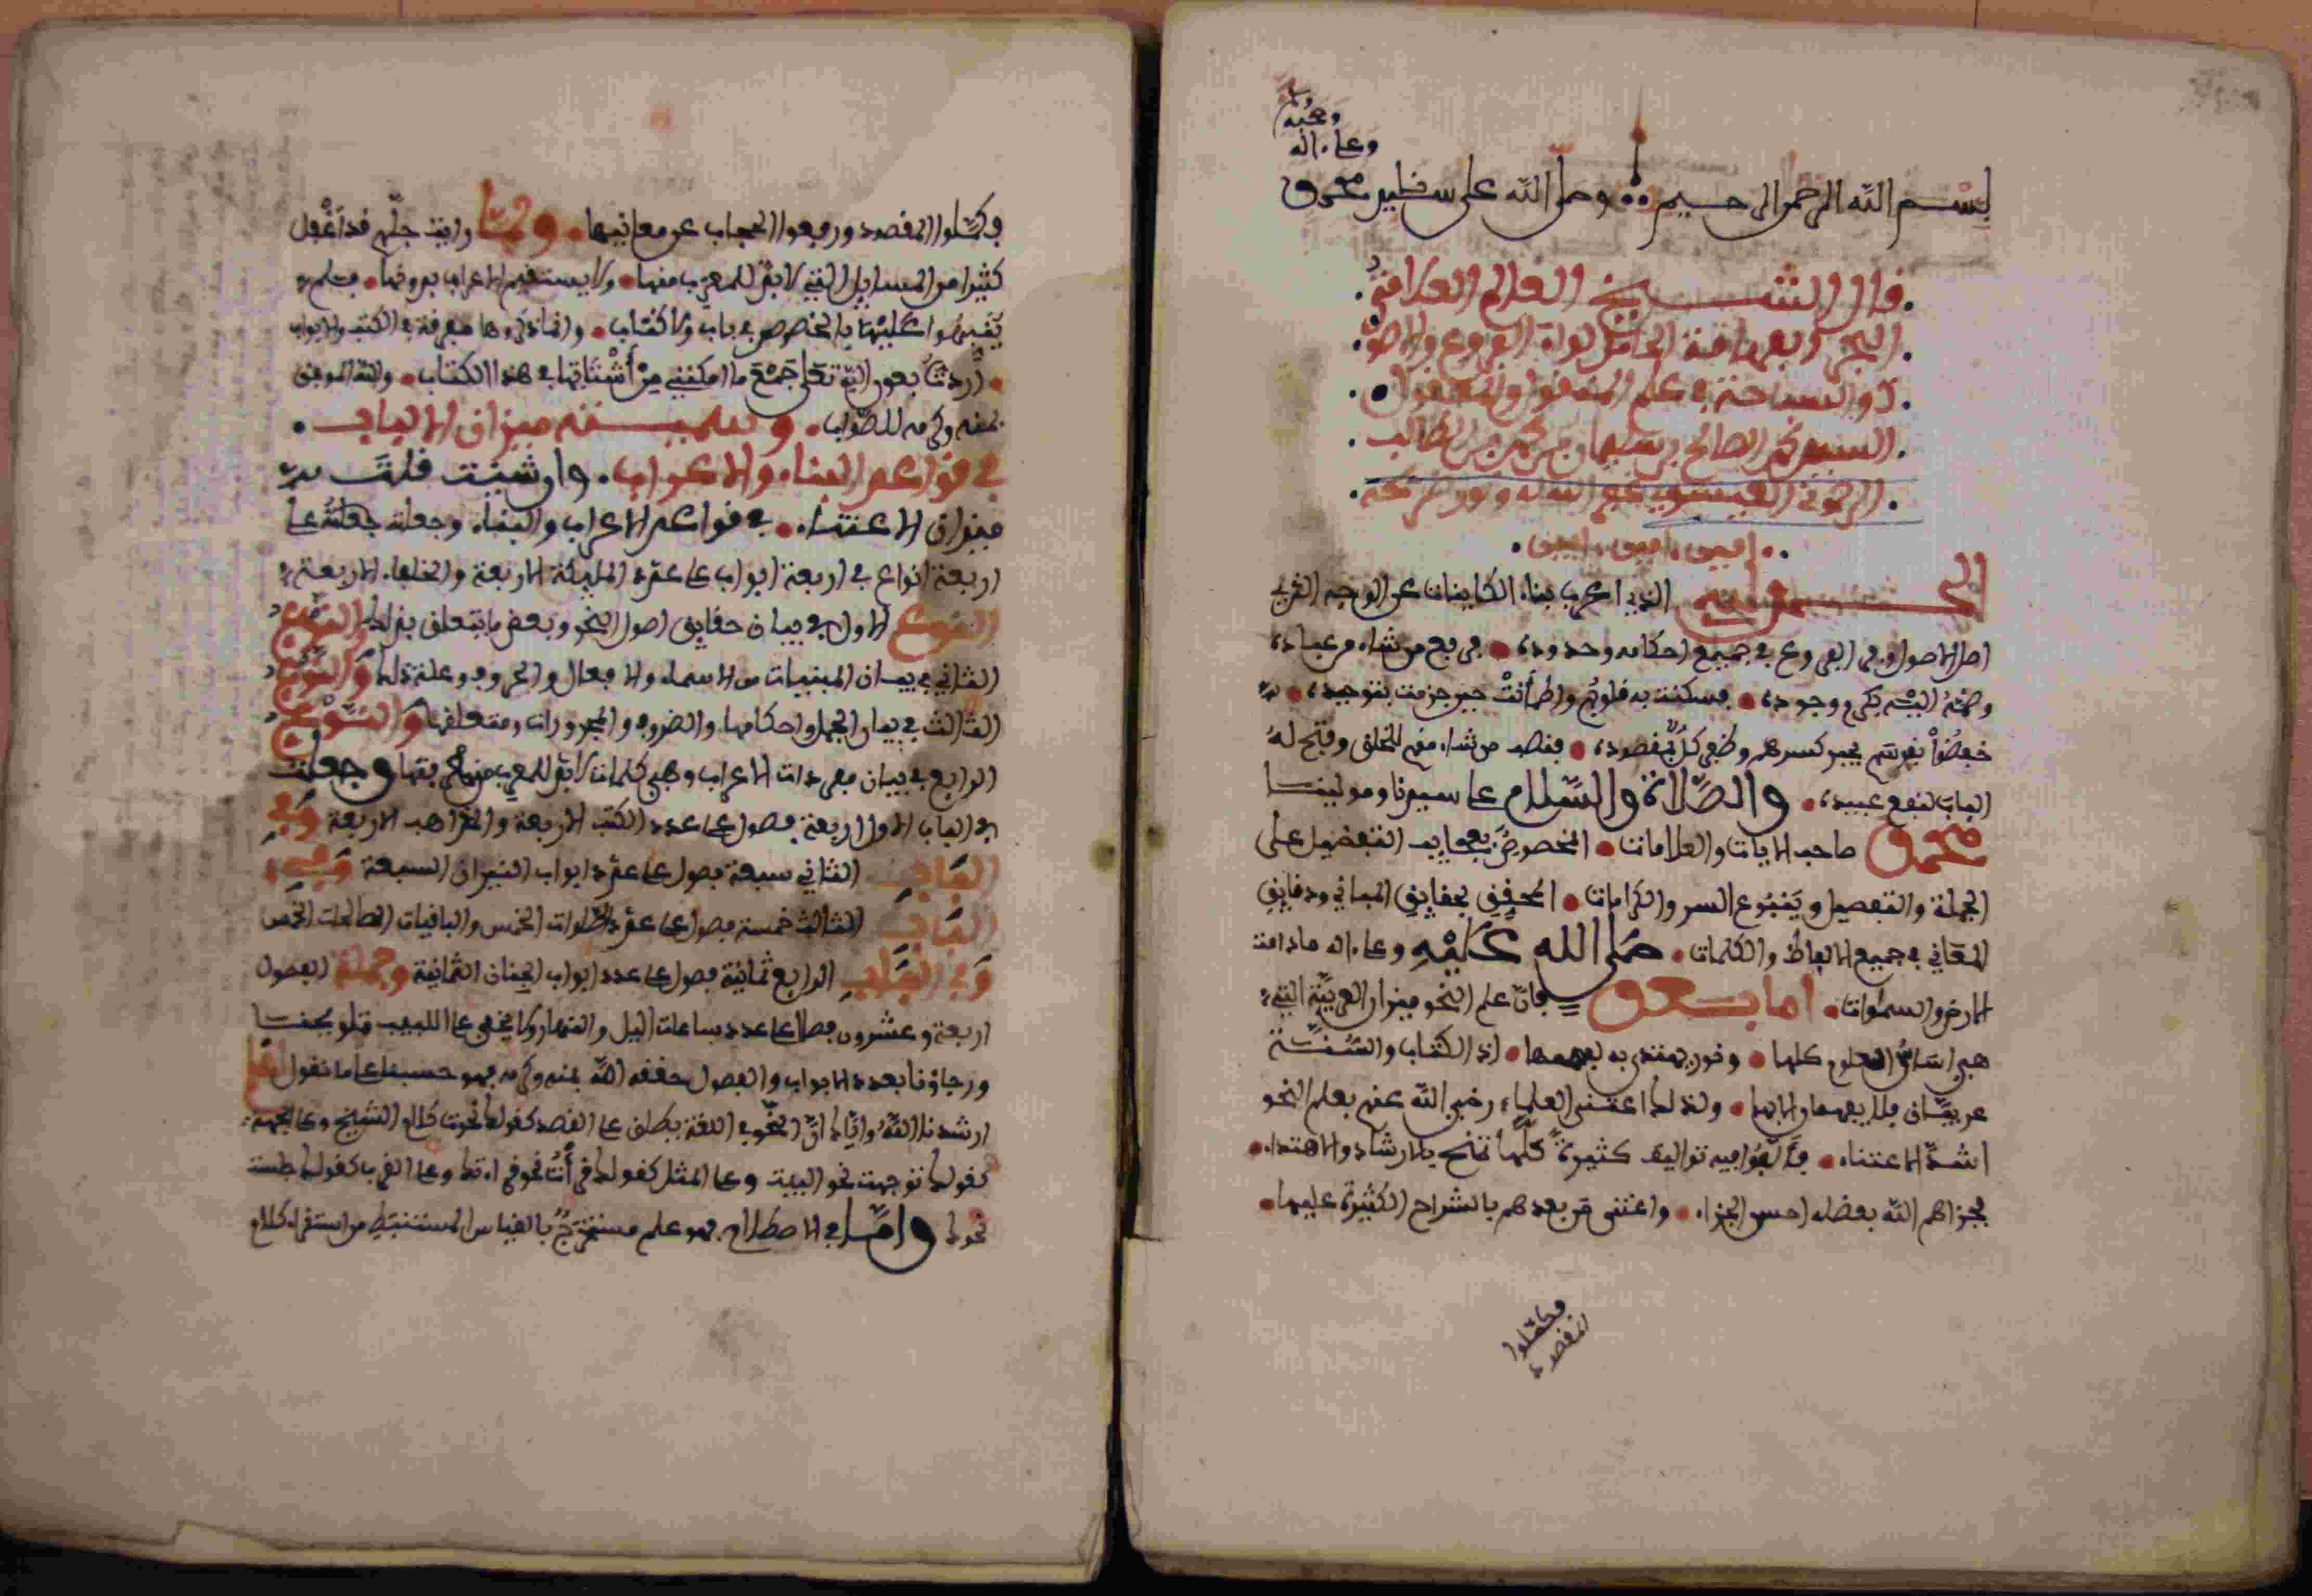 وصحبه
وعلى ءاله
بسم الله الرحمن الرحيم وصلى الله على سيدنا محمد
قال الشيخ العالم العلامة
البحر الفهامة الحامل لواء الفروع والاصول
ذو السباحة في علم المنقول والمعقول
السيد محمد الصالح بن سليمان بن محمد بن الطالب
الرحموني العيسوي رحمه الله ونور ضريحه
امين امين امين
الحمد لله الذي اعرب بناء الكاينات عن الوجيه القريب
اصل الاصول وفي الفروع في جميع احكامه وحدوده فرفع من شاء من عباده
وضمه اليه بكرمه وجوده فسكنت به قلوبهم واطمأنت حين جزمت بتوحيده
خفضوا نفوسهم بجبر كسرهم وظفر كل بمقصوده فنصب من شاء منهم للخلق وفتح له
الباب لنفع عبيده والصلاة والسلام على سيدنا ومولينا
محمد صاحب الايات والعلامات المخصوص بعجايب التفضيل على
الجملة والتفصيل وينبوع السر والكرامات المحقق بحقايق المباني ودقايق
المعاني في جميع الالفاظ والكلمات صلى الله عليه وعلى ءاله مادامت
الارض والسموات اما بعد فان علم النحو ميزان العربية التي
هي اساس العلوم كلها ونور يهتدى به لفهمها اذ الكتاب والسنة
عربيان فلا يفهمان الا بها ولذلك اعتنى العلماء رضي الله عنهم بعلم النحو
اشد الاعتناء فألفوا فيه تواليف كثيرة كلها تنصح بالارشاد والاهتداء
فجزاهم الله بفضله احسن الجزاء واعتنى من بعدهم بالشراح الكثيرة عليها
فكملوا
المقصود
فكملوا المقصود ورفعوا الحجاب عن معانيها ولما رايت جلهم قد اغفل
كثيرا من المسايل التي لابد للمعرب منها ولا يستقيم الاعراب بدونها فلم
يضبطوا كليتها بالخصوص في باب ولا كتاب وانما ذكروها مفرقة في الكتب والابواب
اردت بعون الله تعلى جمع ما امكنني من أشتاتها في هذا الكتاب والله الموفق
بمنه وكرمه للصواب وسميته ميزان الالباب
في قواعد البناء والاعراب وان شئت قلت
ميزان الاعتناء في قواعد الاعراب والبناء وجعلته على
اربعة انواع في اربعة ابواب على عدد المليكة الاربعة والخلفاء الاربعة
النوع الاول في بيان حقايق اصول النحو وبعض ما يتعلق بذلك النوع
الثاني في بيان المبنيات من الاسماء والافعال والحروف وعلة ذلك والنوع
الثالث في بيان الجمل واحكامها والظروف والمجرورات ومتعلقها والنوع
الرابع في بيان مفردات الاعراب وهي كلمات لابد للمعرب من معرفتها وجعلت
في الباب الاول اربعة فصول على عدد الكتب الاربعة والمذاهب الاربعة وفي
الباب الثاني سبعة فصول على عدد ابواب النيران السبعة وفي
الباب الثالث خمسة فصول على عدد الصلوات الخمس والباقيات الصالحات الخمس
وفي الباب الرابع ثمانية فصول على عدد ابواب الجنان الثمانية وجملة الفصول
اربعة وعشرون فصلا على عدد ساعات اليل والنهار ولا يخفى على اللبيب
ورجاؤنا بعدد الابواب والفصول حققه الله بمنه وكرمه فهو حسبنا على ما نقول اعلم
ارشدنا الله واياك ان النحو في اللغة يطلق على القصد كقولك نحوت كلام الشيخ وعلى الجهة
كقولك توجهت نحو البيت وعلى المثل كقولك وعلى القرب كقولك جلست
نحوك واما في الاصطلاح فهو علم مستخرج بالقياس المستنبط من استقراء كلام